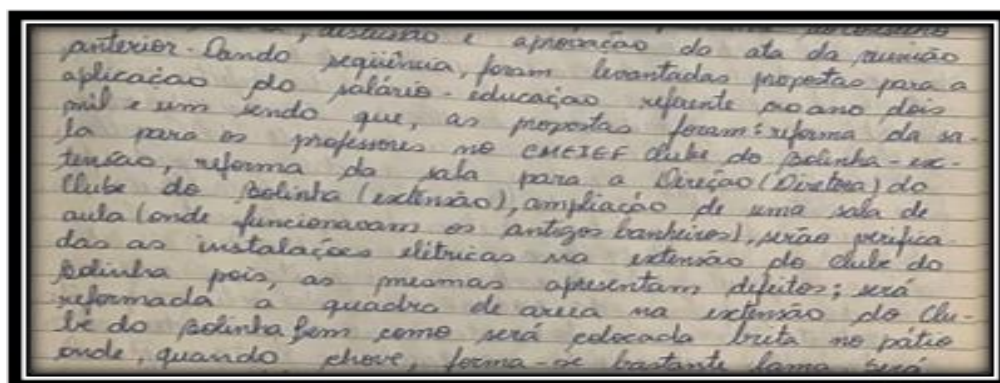 , discussão e aprovação da ata da reunião
anterior. Dando seqüência, foram levantadas propostas para a
aplicação do salário-educação referente ao ano dois
mil e um sendo que, as propostas foram: reforma da sa-
la para os professores no CMEIEF Clube do Bolinha - ex-
tensão, reforma da sala para a Direção (Diretora) do
Clube do Bolinha (extensão), ampliação de uma sala de
aula (onde funcionavam os antigos banheiros), serão verifica-
das as instalações elétricas na extensão do Clube do
Bolinha pois, as mesmas apresentam defeitos; será
reformada a quadra de areia na extensão do Clu-
be do Bolinha bem como será colocada brita no pátio
onde, quando chove, forma-se bastante lama. Será